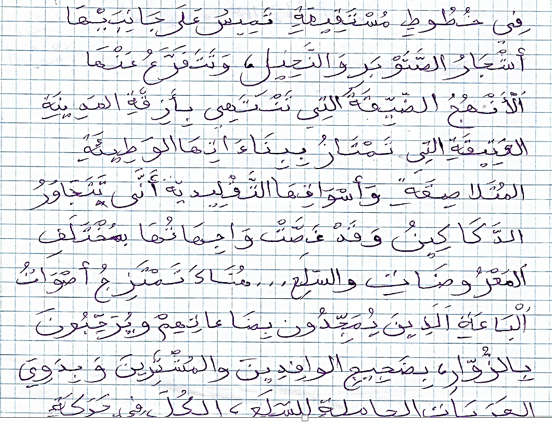 فِي خُطُوطٍ مُسْتَقِيمَةٍ تَمِيسُ عَلَى جَانِبَيْهَا
أَشْجَارُ الصَّنَوْبَرِ وَالنَّخِيلِ، وَتَتَفَرَّعُ عَنْهَا
اَلْأَنْهُجُ الضَّيِّقَةُ الَّتِي تَنْتَهِي بِأَزِقَّةِ المَدِينَةِ
العَتِيقَةِ الَّتِي تَمْتَازُ بِبِنَاءَاتِهَا الوَطِيئَةِ
المُتَلَاصِقَةِ وَأَسْوَاقِهَا التَّقْلِيدِيَّةِ أَنَّى تَتَجَاوَرُ
الدَّكَاكِينُ وَقَدْ غَصَّتْ وَاجِهَاتُهَا بِمُخْتَلَفِ
اَلْمَعْرُوضَاتِ والسِّلَعِ... هُنَاكَ تَمْتَزِجُ أَصْوَاتُ
اَلْبَاعَةِ الَّذِينَ يُمَجِّدُونَ بِضَاعَاتِهِمْ وَيُرَحِّبُونَ
بِالزُّوَّارِ، بِضَجِيجِ الوَافِدِينَ والمُشْتَرِينَ وَبِدَوِيِّ
العَرَبَاتِ الحامِلَةِ لِلسِّلَعِ، الكُلُّ فِي حَرَكَةٍ